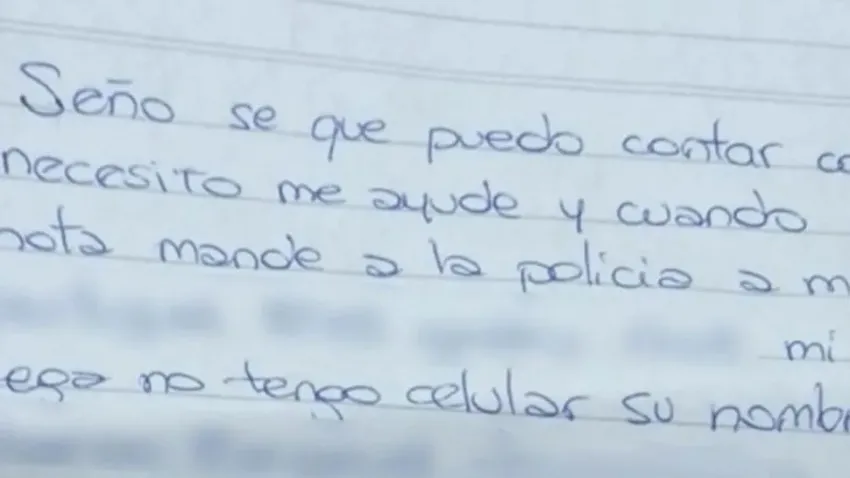 Seño se que puedo contar co
necesito me ayude y cuando
nota mande a la policia a m
mi
ega no tengo celular su nomb